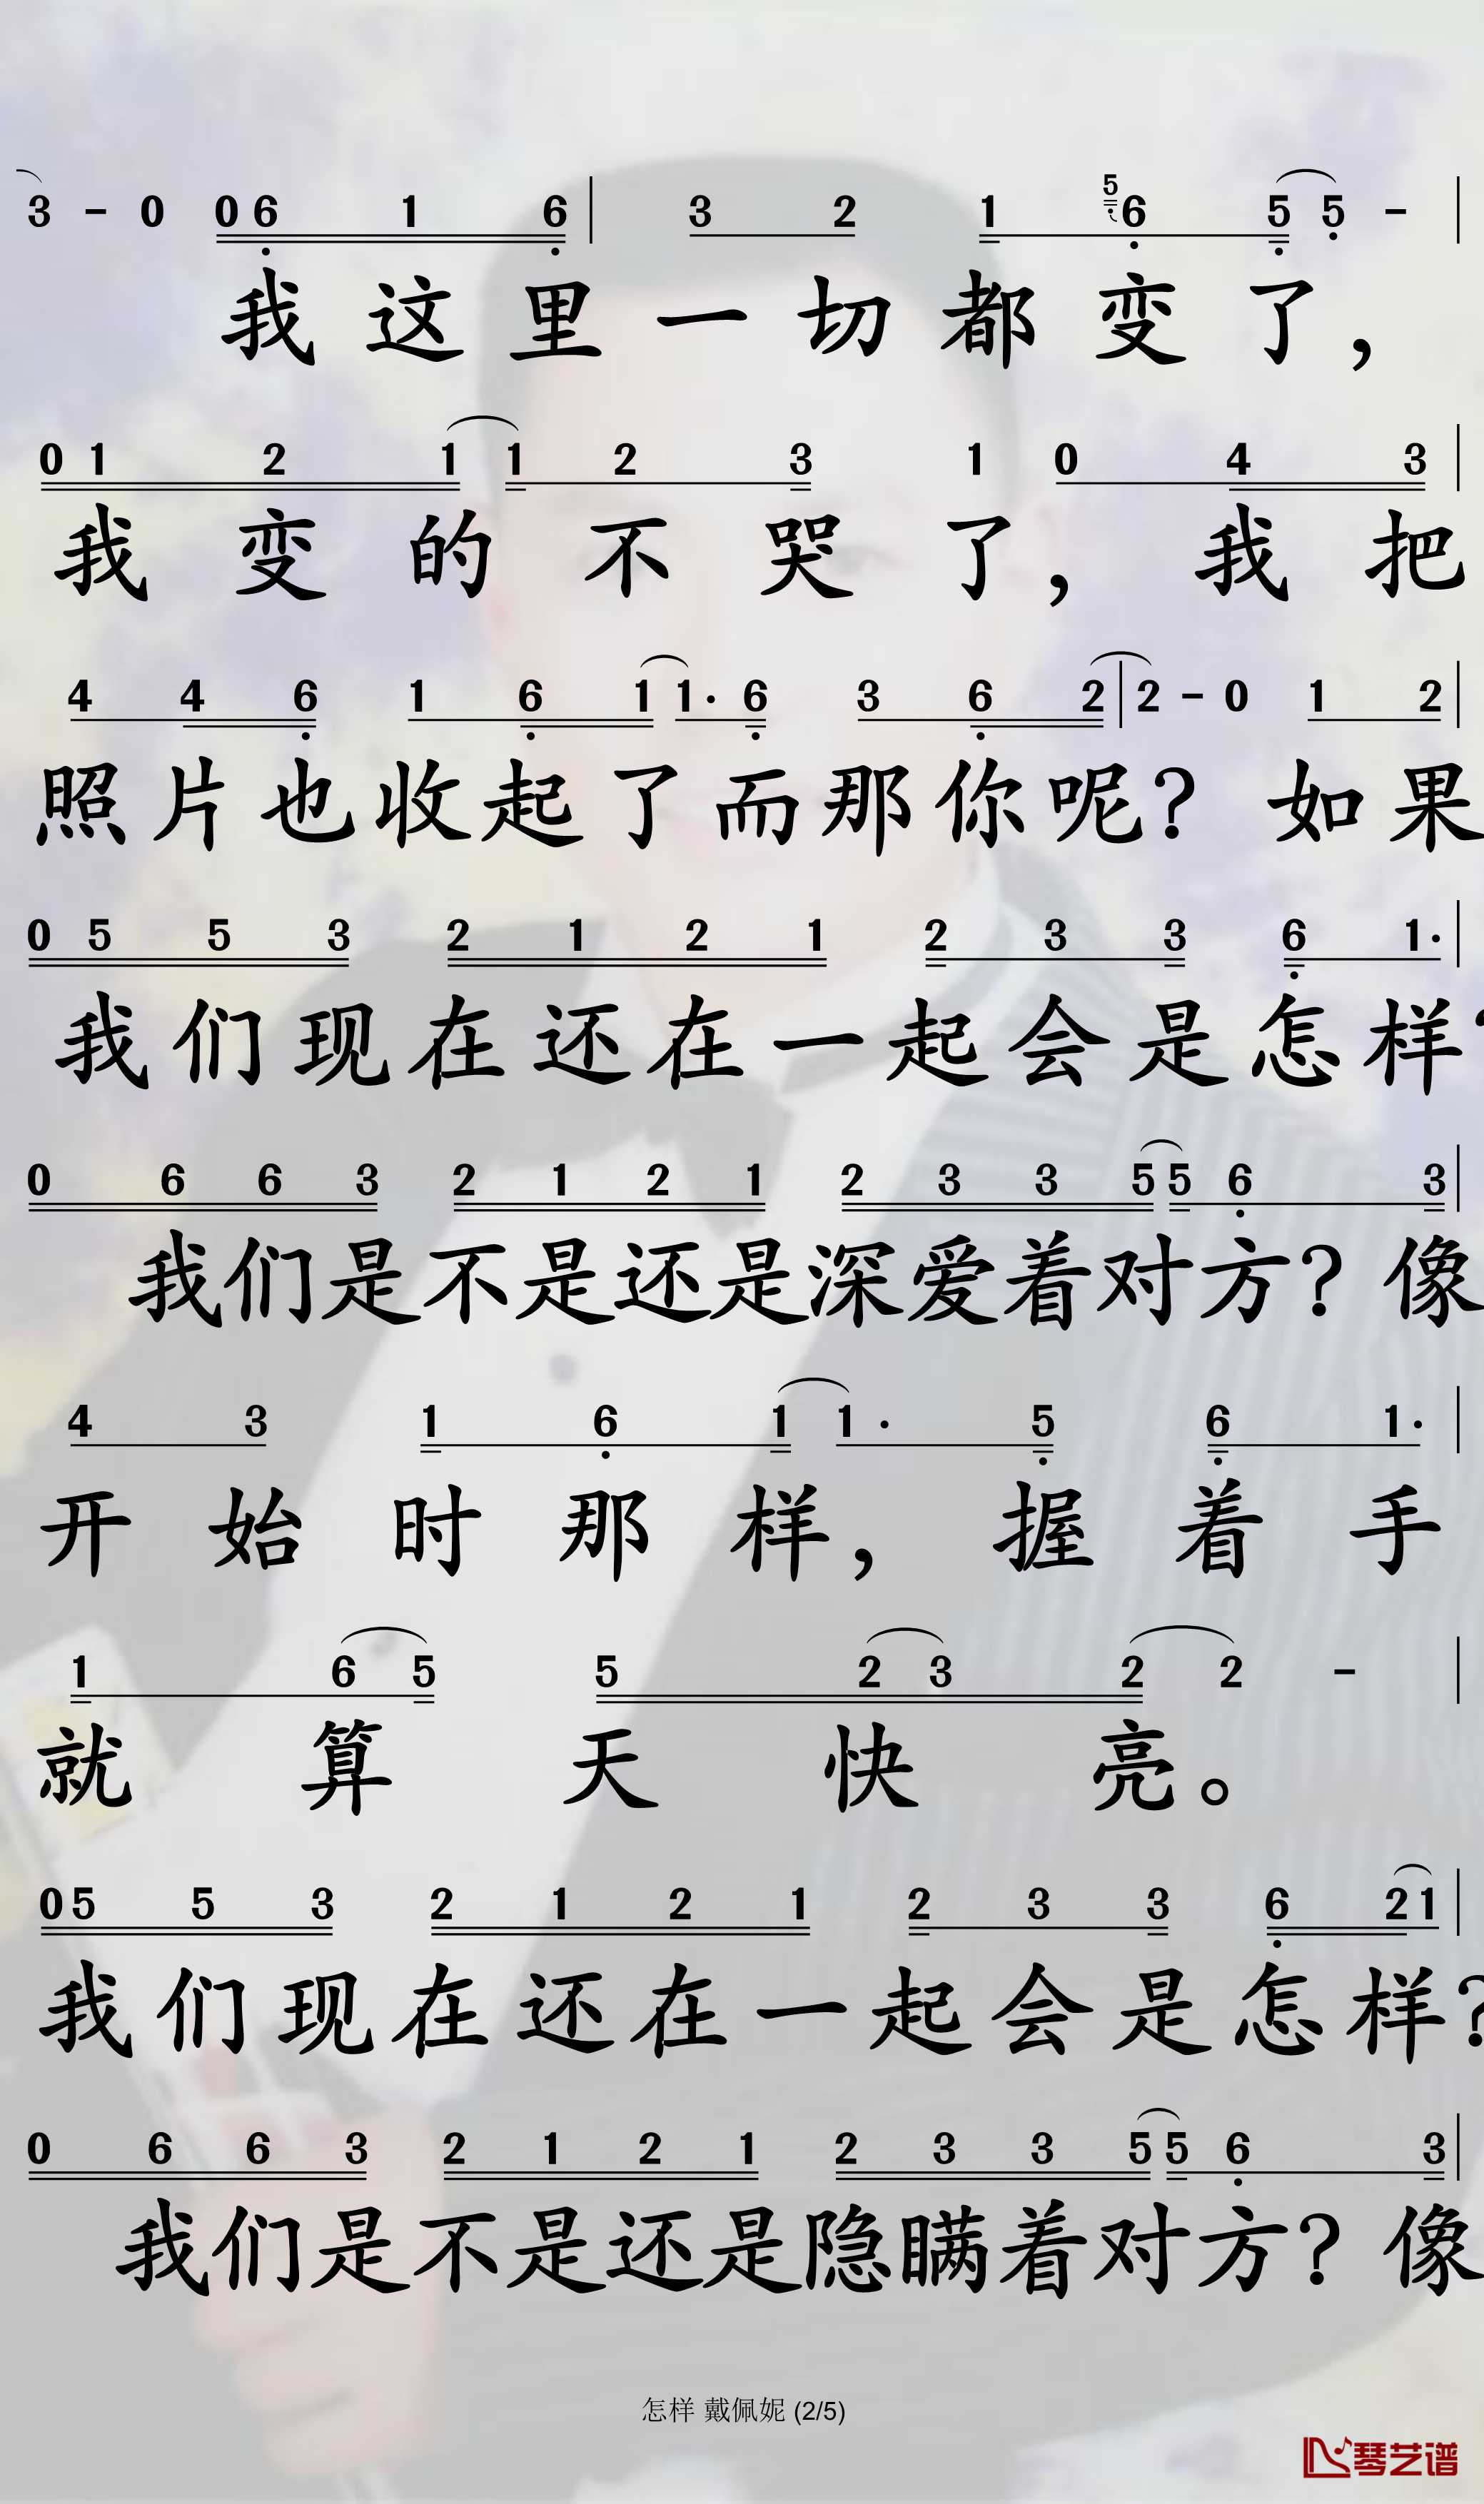 3 - 0 0 6 1 6 | 3 2 1 5 6 5 5 - |
我这里一切都变了，
0 1 2 1 1 2 3 1 0 4 3 |
我变的不哭了，我把
4 4 6 1 6 1 1· 6 3 6 2 | 2 - 0 1 2 |
照片也收起了而那你呢？如果
0 5 5 3 2 1 2 1 2 3 3 6 1· |
我们现在还在一起会是怎样？
0 6 6 3 2 1 2 1 2 3 3 5 5 6 3 |
我们是不是还是深爱着对方？像
4 3 1 6 1 1· 5 6 1· |
开始时那样，握着手
1 6 5 5 2 3 2 2 - |
就算天快亮。
0 5 5 3 2 1 2 1 2 3 3 6 2 1 |
我们现在还在一起会是怎样？
0 6 6 3 2 1 2 1 2 3 3 5 5 6 3 |
我们是不是还是隐瞒着对方？像
怎样 戴佩妮 (2/5)
琴艺谱